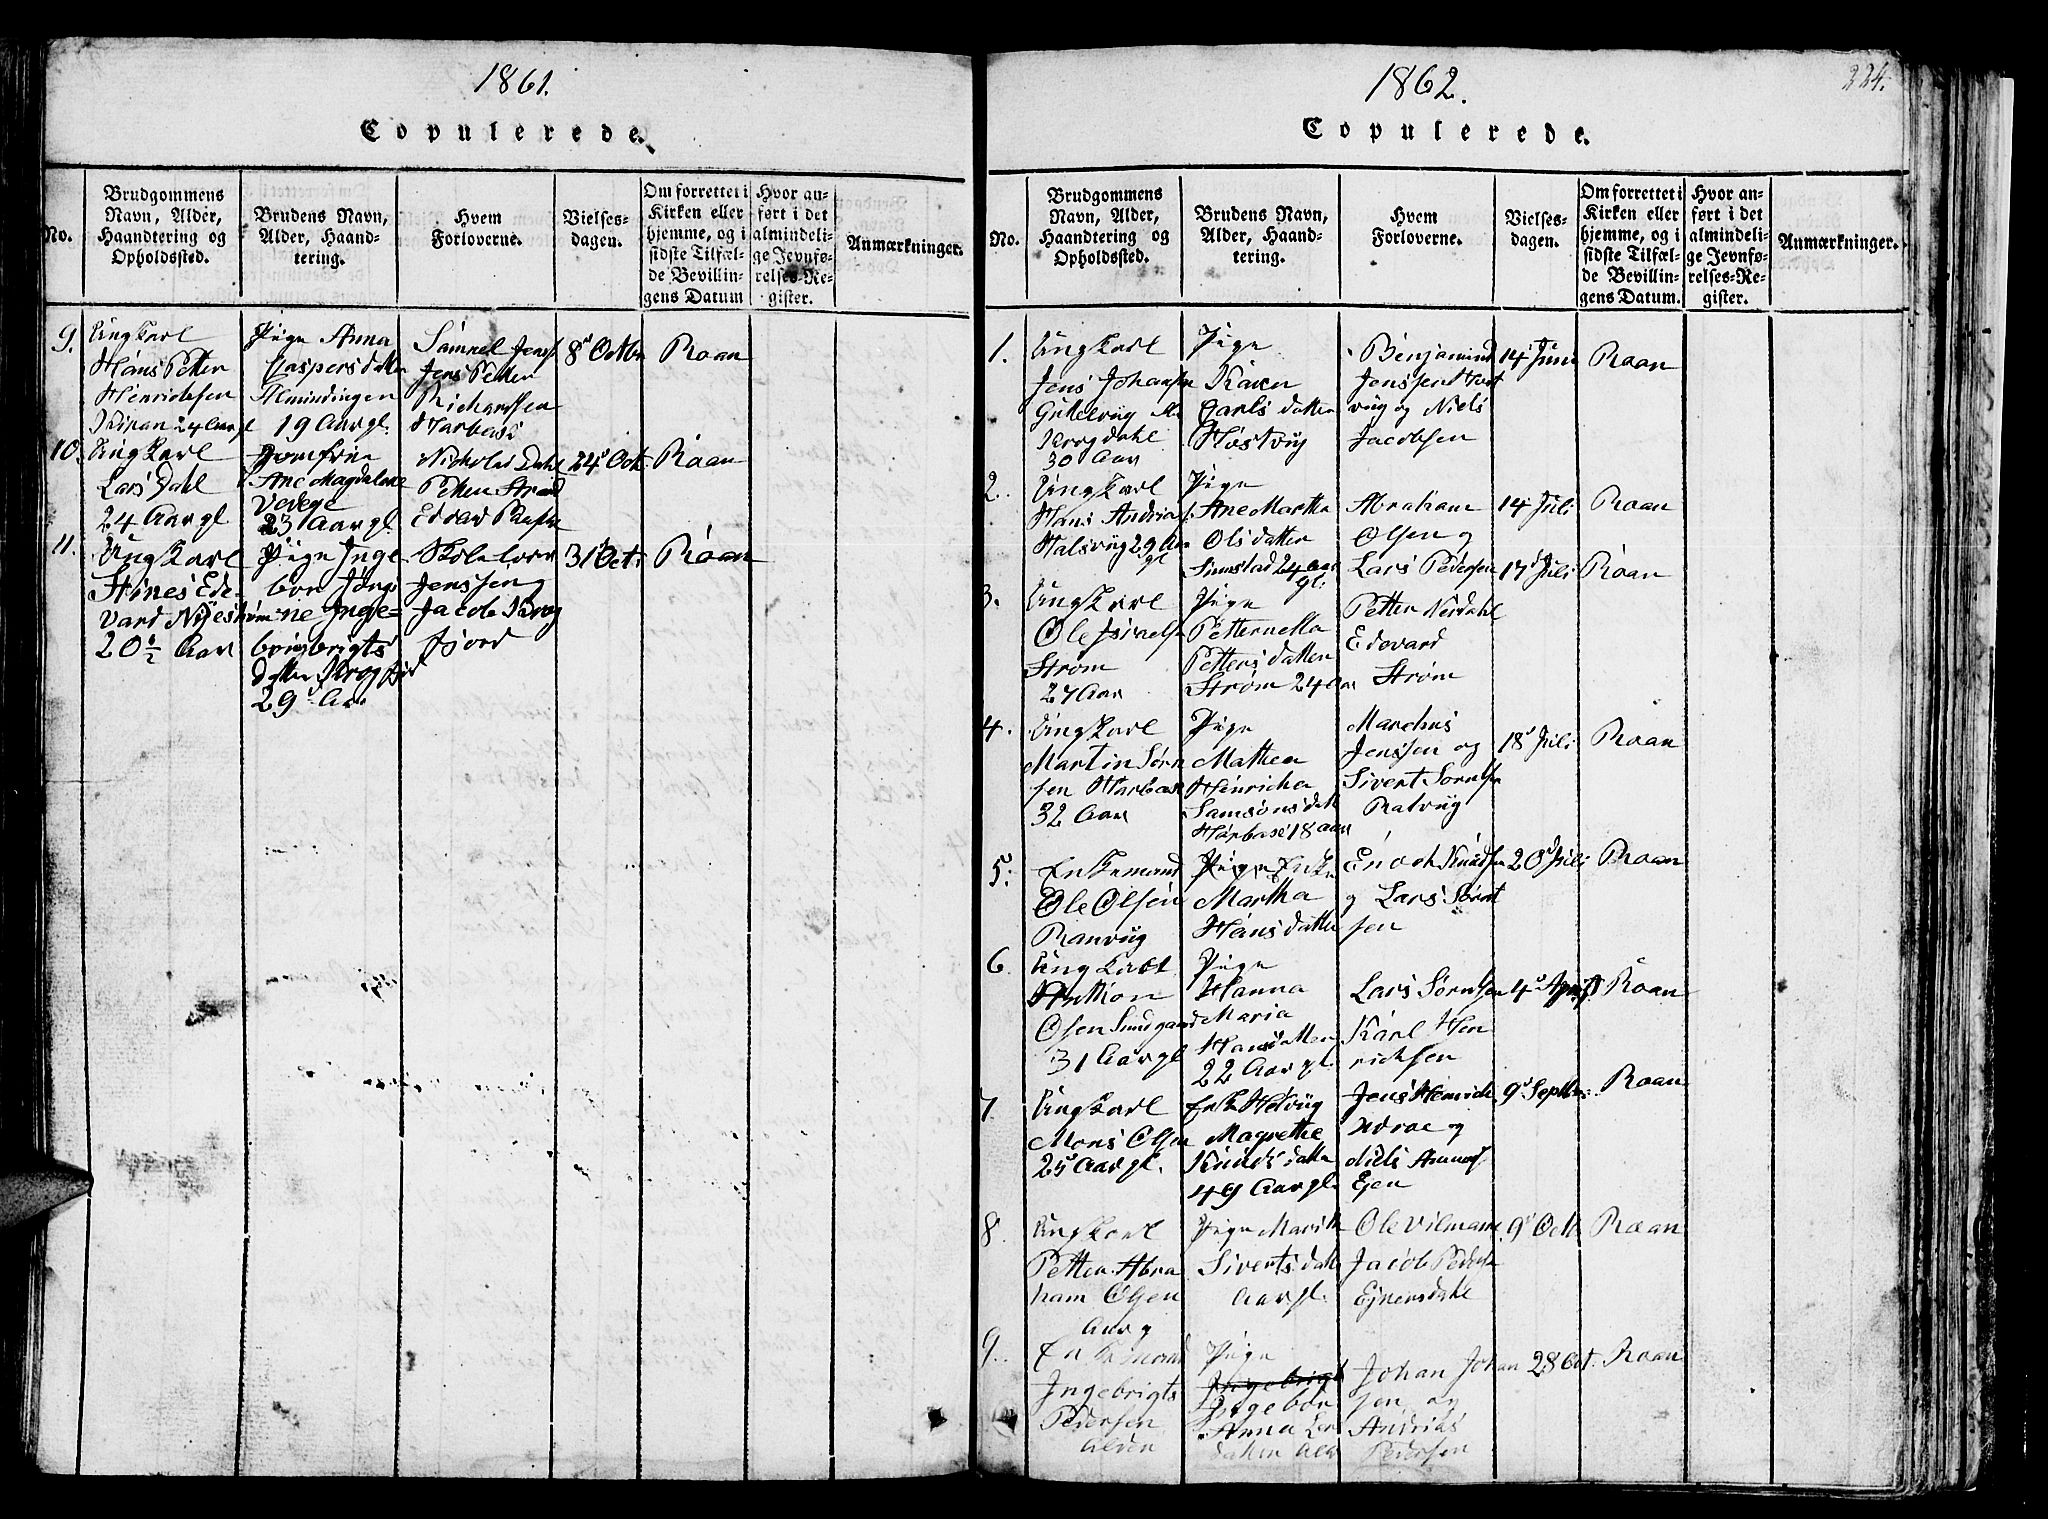 1861.
Copulerede.
No.
Brudgommens
Navn, Alder,
Haandtering og
Opholdssted.
Brudens Navn,
Alder, Haand-
tering.
Hvem
Forloverne.
Vielses-
dagen.
Om forrettet i
Kirken eller
hjemme, og i
sidste Tilfæl-
de Bevillin-
gens Datum
Hvor an-
ført i det
almindeli-
ge Jevnfø-
relses-Re-
gister.
Anmærkninger.
9.
Ungkarl
Hans Petter
Henriksen
Kiran 24 Aar gl
Pige Anna
Caspersdatter
Almindingen
19 Aar gl.
Samuel Jens
Jens Petter
Richardsen
Harbak
8 Octbr
Roan
10.
Ungkarl
Lars Dahl
24 Aar gl
Jomfrue
Ane Magdalene
Vedege
23 Aar gl.
Nickolai Dahl
Petter Strand
Edvar
24 Oct.
Roan
11.
Ungkarl
Hines Ede-
vard
20½ Aar
Pige Inge
bor
ne Inge-
brigts
datter Krogfjord
29 Aar
Skolelærer
Jenssen og
Jacob Krog
fjord
31 Oct:
Roan
1862.
224.
Copulerede.
No.
Brudgommens
Navn, Alder,
Haandtering og
Opholdssted.
Brudens Navn,
Alder, Haand-
tering.
Hvem
Forloverne.
Vielses-
dagen.
Om forrettet i
Kirken eller
hjemme, og i
sidste Tilfæl-
de Bevillin-
gens Datum.
Hvor an-
ført i det
almindeli-
ge Jevnfø-
relses-Re-
gister.
Anmærkninger.
1.
Ungkarl
Jens Johansen
Krogdahl
30 Aar
Pige
Karen
Carlsdatter
Hostviig
Benjamind
Jenssen Host
viig og Niels
Jacobsen
14 Juni
Roan
2.
Ungkarl
Hans Andrias
Halsviig 29 Aar
gl
Pige
Ane Martha
Olsdatter
Sumstad 24 Aar
gl.
Abraham
Olsen og
Lars Pedersen
14 Juli
Roan
3.
Ungkarl
Ole
Strøm
27 Aar
Pige
Petternella
Pettersdatter
Strøm 24 Aar
Petter Nerdahl
Edovard
Strøm
17 Juli
Roan
4.
Ungkarl
Martin Sørn
sen Harbak
32 Aar
Pige
Mathea
Henricha
Samsonsdatt
Harbak 18 Aar
Marchus
Jenssen og
Sivert Sørnsen
Ratviig
18 Juli
Roan
5.
Enkemand
Ole Olsen
Ranviig
Pige Enke
Martha
Hansdatter
Enoch Knudsen
og Lars Sørnt
sen
20 Juli
Roan
6.
Ungkarl
Anthon
Olsen Sundgaard
31 Aar gl
Pige
Hanna
Maria
Hansdatter
22 Aar gl.
Lars Sørnsen
Karl Hen
richsen
Roan
7.
Ungkarl
Mons Olsen
25 Aar gl.
Enke Helviig
Magrethe
Knudsdatter
49 Aar gl.
Jens Henrich
og
Niels
9 Septbr.
Roan
8.
Ungkarl
Petter Abra
ham Olsen
Aar g
Pige Marith
Sivertsdatter
Aar gl.
Ole Vilmann
Jacob Pedersen
Ejnersdahl
9 Octb
Roan
9.
Enkemand
Ingebrigt
Pedersen
Pige
Ingebrigt
Ingebor
Anna
datter
Johan Johan
sen og
Andrias
Pedersen
28 Oct.
Roan